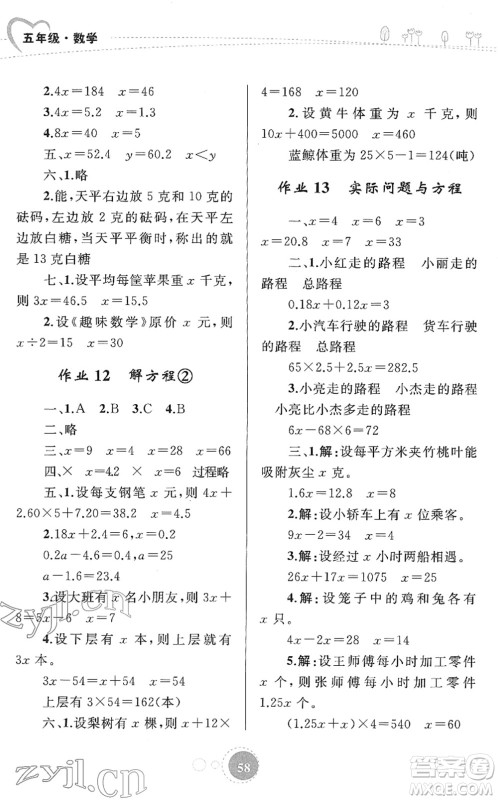 五年级·数学
2.4x=184　x=46
3.4x=5.2　x=1.3
4.8x=40　x=5
五、x=52.4　y=60.2　x<y
六、1.略
2.能，天平右边放 5 克和 10 克的
砝码，左边放 2 克的砝码，再在天平的
左边放白糖，当天平平衡时，称出的就
是 13 克白糖
七、1.设平均每筐苹果重 x 千克，
则　3x=46.5　x=15.5
2.设《趣味数学》原价 x 元，则
x÷2=15　x=30
作业 12　解方程②
一、1.A　2.B　3.C　4.B
二、略
三、x=9　x=4　x=28　x=66
四、×　x=4.2　×　x=6　过程略
五、1.设每支钢笔 x 元，则　4x+
2.60×5+7.20=38.2　x=4.5
2.18x+2.4=6　x=0.2
0.2a-4.8=1.2　a=30
a-1.6=23.4　a=25
3.设大班有 x 名小朋友，则　3x+
8=5x-6　x=7
4.设下层有 x 本，则上层有
3x 本。
3x-54=x+54　x=54
上层有 3×54=162(本)
六、1.设梨树有 x 棵，则　x+12×
4=168　x=120
2.设黄牛体重为 x 千克，则
10x+400=5000　x=460
蓝鲸体重为 25×5-1=124(吨)
作业 13　实际问题与方程
一、x=4　x=6　x=3
x=20.8　x=7　x=3
二、1.小红走的路程　小丽走的
路程　总路程
0.18x+0.12x=3
2.小汽车行驶的路程　货车行驶
的路程　总路程
65×2.5+2.5x=282.5
3.小亮走的路程　小杰走的路程
小亮比小杰多走的路程
6x-68×6=72
三、1.解：设每平方米夹竹桃叶能
吸附灰尘 x 克。
1.6x=12.8　x=8
2.解：设小轿车上有 x 位乘客。
9x-2=34　x=4
3.解：设经过 x 小时两船相遇。
26x+17x=1075　x=25
4.解：设笼子中的鸡和兔各有
x 只。
4x-2x=24　x=12
5.解：设王师傅每小时加工零件
x 个，则张师傅每小时加工零件
1.25x 个。
(1.25x+x)×4=540　x=60
58
zyjl.cn
zyjl.cn
作业
作业精灵
答案圈
MXQE.COM